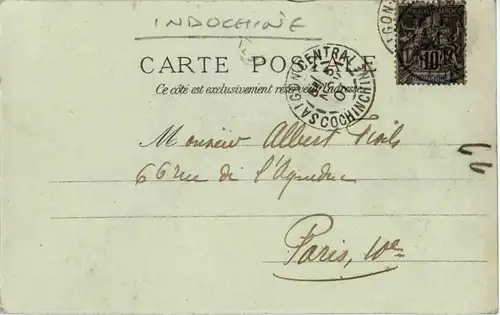 INDOCHINE
CARTE POSTALE
Ce côté est exclusivement réservé à l'adresse
SAIGON CENTRAL
COCHINCHINE
10
Monsieur Albert
66 rue de l'Aqueduc
Paris, Xe